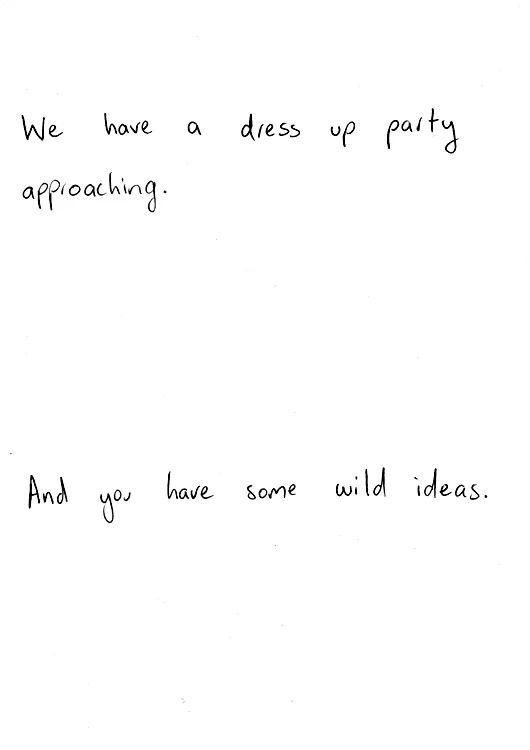 We have a dress up party
approaching.
And you have some wild ideas.